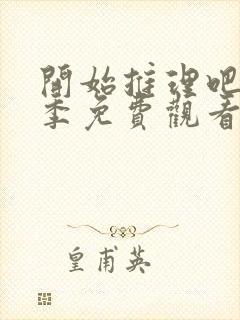 開始推理吧
季免費觀看
皇甫英